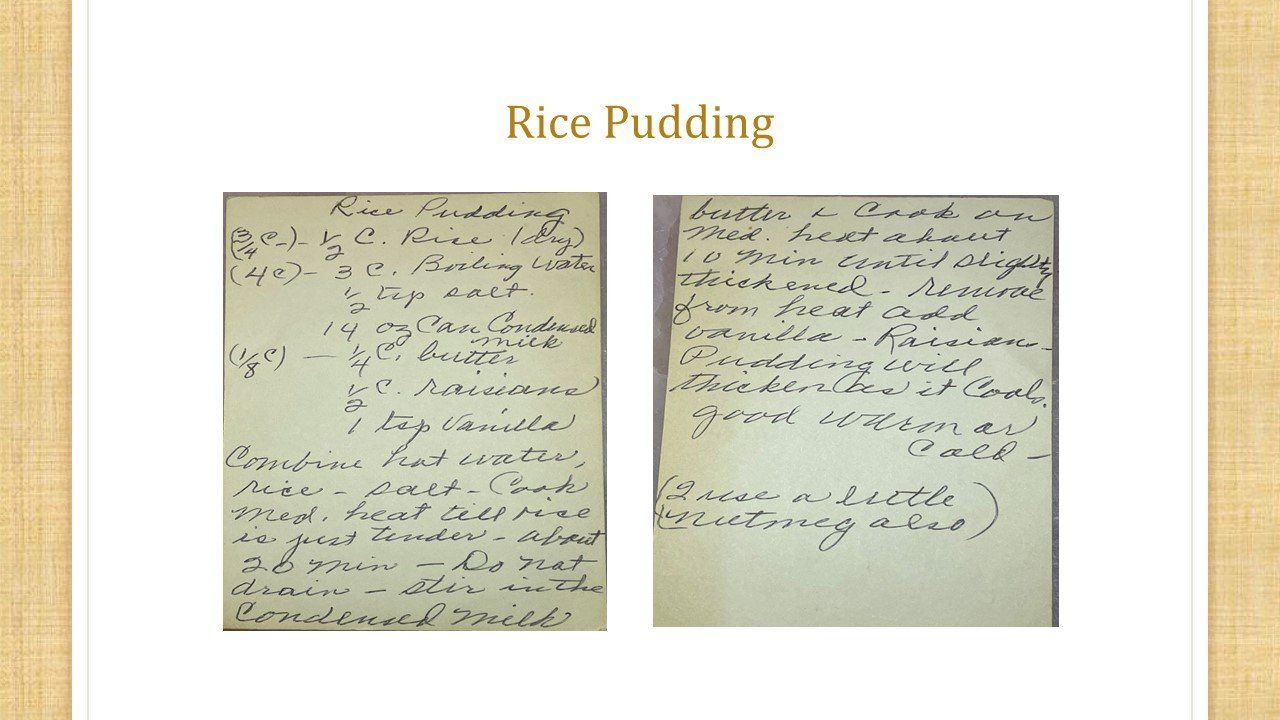 Rice Pudding
Rice Pudding
(3/4 C-) - 1/2 C. Rise (dry)
(4 C) - 3 C. Boiling Water
1/2 tsp salt.
14 oz Can Condensed
milk
(1/8 C) - 1/4 C. butter
1/2 C. raisians
1 tsp Vanilla
Combine hot water,
rice - salt - Cook
med. heat till rise
is just tender - about
20 min - Do not
drain - stir in the
Condensed Milk
butter & Cook on
Med. heat about
10 min until slightly
thickened - remove
from heat add
vanilla - Raisian -
Pudding will
thicken as it Cools.
good warm or
Cold -
(I use a little
nutmeg also)